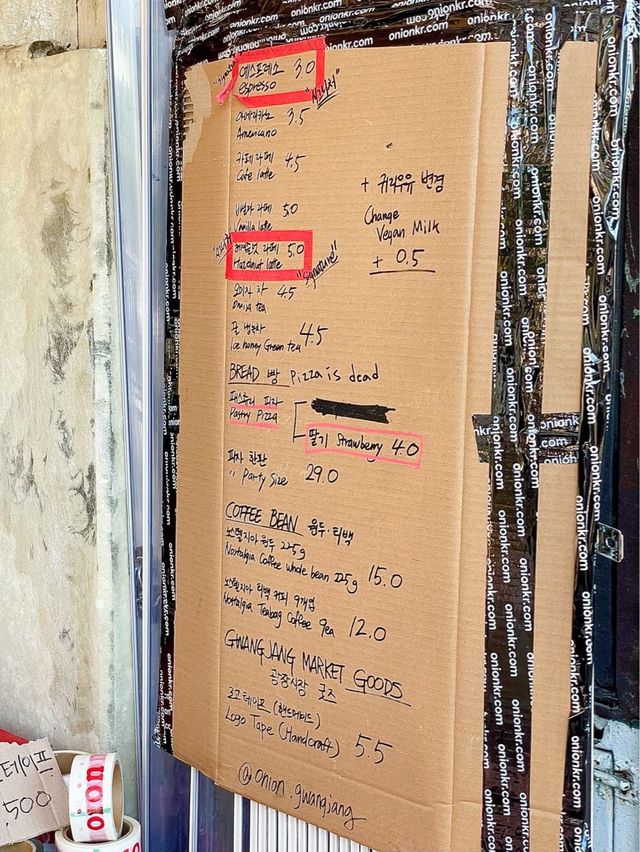 에스프레소 3.0
espresso
"시그니처"
아메리카노 3.5
Americano
카페 라떼 4.5
Cafe latte
바닐라 라떼 5.0
Vanilla latte
헤이즐넛 라떼 5.0
Hazelnut latte
"signature"
오미자 차 4.5
Omija tea
꿀 냉녹차 4.5
Ice honey Green tea
+ 귀리우유 변경
Change
Vegan Milk
+ 0.5
BREAD 빵 Pizza is dead
패스츄리 피자
Pastry Pizza
딸기 Strawberry 4.0
피자 한판
" Party Size 29.0
COFFEE BEAN 원두·티백
노스텔지아 원두 225g
Nostalgia Coffee whole bean 225g 15.0
노스텔지아 티백 커피 9개입
Nostalgia Teabag Coffee 9ea 12.0
GWANGJANG MARKET GOODS
광장시장 굿즈
로고 테이프 (핸드메이드)
Logo Tape (Handcraft) 5.5
@onion.gwangjang
onionkr.com
테이프
.500
onion